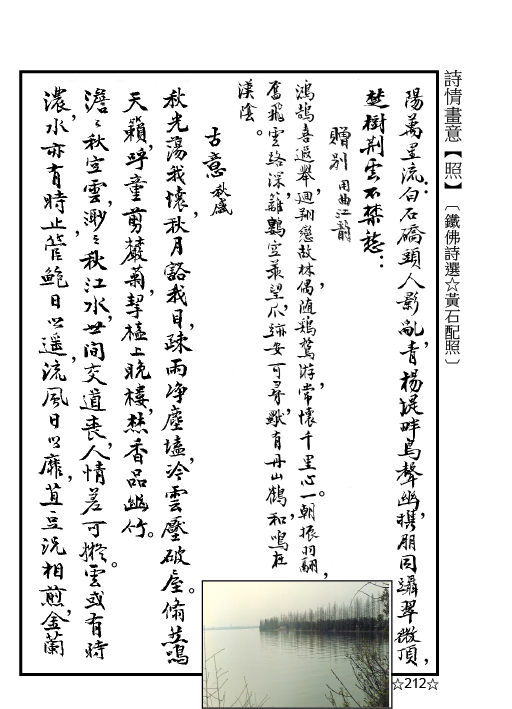 詩情畫意【照】〔鐵佛詩選☆黃石配照〕
陽萬里流。白石磯頭人影亂，青楊堤畔鳥聲幽，携朋同躡翠微頂，
楚樹荊雲不禁愁：
贈別 用曲江韻
鴻鵠喜遐舉，迴翔戀故林，偶隨鵷鷟游，常懷千里心。一朝振羽翮，
奮飛雲路深，籬鷃空羨望，爪跡安可尋，歟有丹山鶴，和鳴在
漢陰。
古意 秋感
秋光蕩我懷，秋月豁我目，疎雨净塵壒，冷雲壓破屋。脩
天籟，呼童剪蘂菊，挈榼上晚樓，焚香品幽竹。
澹澹秋空雲，渺渺秋江水，世間交道喪，人情差可擬。雲或有時
濃，水亦有時止，管鮑日以遥，流風日以靡，萁豆況相煎，金蘭
☆212☆